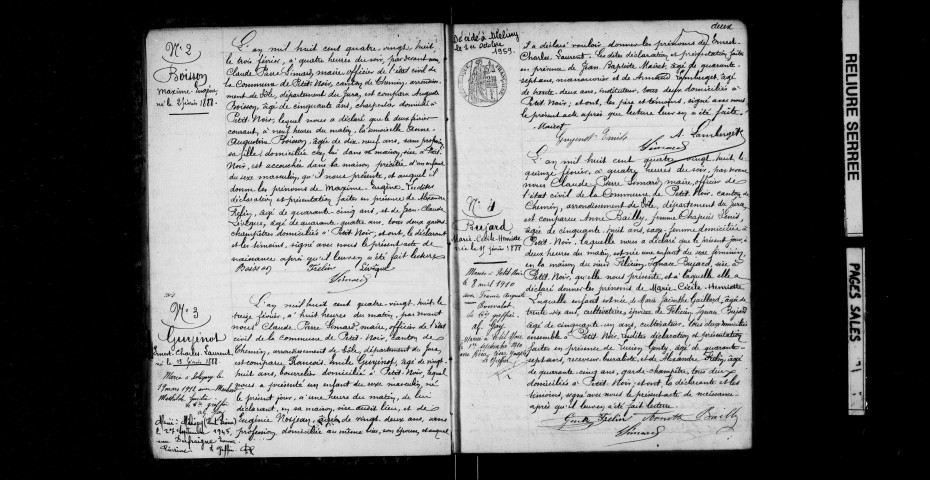 N° 2
Boisson
Maxime Eugène
né le 2 février 1888.
L'an mil huit cent quatre-vingt huit,
le trois février, à quatre heures du soir, par devant nous
Claude Pierre Simard, maire, officier de l'état civil de
la Commune de Petit-Noir, canton de Chemin, arrondissement
de Dôle, département du Jura, est comparu Auguste
Boisson, âgé de cinquante ans, charpentier domicilié à
Petit Noir, lequel nous a déclaré que le deux février
courant, à neuf heures du matin, la demoiselle Anne
Augustine Boisson, âgée de dix neuf ans, sans profession
sa fille, domiciliée chez lui dans sa maison, sise à Petit-
Noir, est accouchée dans la maison précitée d'un enfant
du sexe masculin, qu'il nous présente, et auquel il
donne les prénoms de Maxime-Eugène. Lesdites
déclaration et présentation faites en présence de Alexandre
Frelin, âgé de quarante-cinq ans, et de Jean-Claude
Lévêque, âgé de quarante-quatre ans, tous deux gardes
champêtres domiciliés à Petit Noir, et ont, le déclarant
et les témoins, signé avec nous le présent acte de
naissance après qu'il leur en a été fait lecture
Boisson Frelin Lévêque
Simard
N° 3
Guyenot
Ernest Charles Laurent
né le 13 février 1888.
L'an mil huit cent quatre-vingt-huit, le
treize février, à huit heures du matin, par devant
nous Claude Pierre Simard, maire, officier de l'état
civil de la commune de Petit-Noir, canton de
Chemin, arrondissement de Dôle, département du Jura
est comparu François Emile Guyenot, âgé de vingt
huit ans, bourrelier domicilié à Petit Noir, lequel
nous a présenté un enfant du sexe masculin, né
le présent jour, à une heure du matin, de lui
déclarant, en sa maison, sise audit lieu, et de
Eugénie Nosjean, âgée de vingt deux ans, sans
profession, domiciliée au même lieu, son épouse, et auquel
deux
Décédé à
le 1er octobre
1969.
il a déclaré vouloir donner les prénoms de Ernest-
Charles Laurent. Lesdites déclaration et présentation faites
en présence de Jean Baptiste Mairet, âgé de quarante-
sept ans, manouvrier et de Armand
de trente-deux ans, instituteur, tous deux domiciliés à
Petit Noir; et ont, les père et témoins, signé avec nous
le présent acte après que lecture leur en a été faite.
Mairet
Guyenot Emile
Simard
N° 4
Bujard
Marie-Cécile-Henriette
née le 15 février 1888
L'an mil huit cent quatre vingt-huit, le
quinze février, à quatre heures du soir, par devant
nous Claude Pierre Simard, maire, officier de
l'état civil de la Commune de Petit Noir, canton de
Chemin, arrondissement de Dôle, département du Jura,
est comparue Anne Bailly, femme Chapuis Denis,
âgée de cinquante huit ans, sage-femme domiciliée à
Petit-Noir, laquelle nous a déclaré que le présent jour, à
deux heures du matin, est née une enfant du sexe féminin,
en la maison du sieur Félicien Ignace Bujard, sise à
Petit Noir, qu'elle nous présente, et à laquelle elle a
déclaré donner les prénoms de Marie-Cécile Henriette
Laquelle enfant est née de Marie Jacinthe Gaillard, âgée de
trente six ans, cultivatrice, épouse de Félicien Ignace Bujard
âgé de cinquante-un ans, cultivateur, tous deux domiciliés
ensemble à Petit Noir. Lesdites déclaration et présentation
faites en présence de Lucien Gouts, âgé de quarante-
sept ans, receveur buraliste, et de Alexandre Frelin, âgé
de quarante cinq ans, garde-champêtre, tous deux
domiciliés à Petit Noir; et ont, la déclarante et les
témoins, signé avec nous le présent acte de naissance
après qu'il leur en a été fait lecture.
Frelin Bailly
Simard
RELIURE SERREE
PAGES SALES